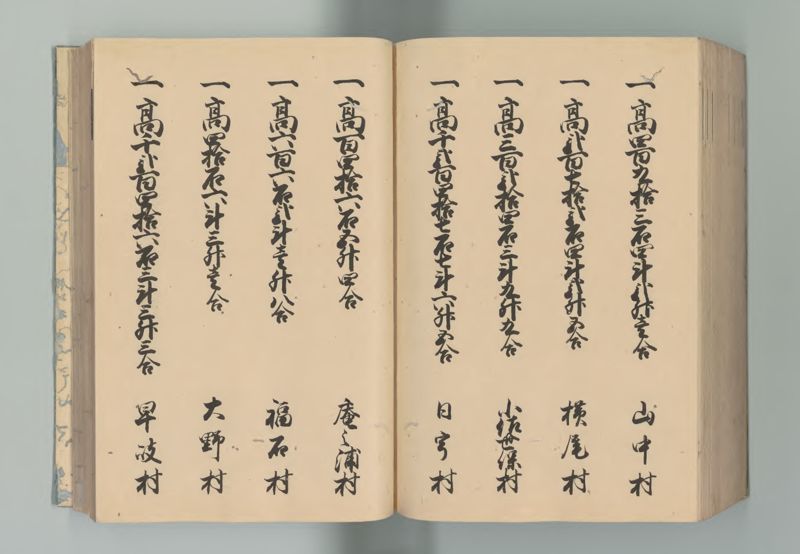 一 高四百九拾三石四斗弐升壱合 山中村
一 高弐百七拾弐石四斗弐升五合 横尾村
一 高三百弐拾四石三斗九升九合 小佐世保村
一 高千弐百四拾七石七斗六升五合 日宇村
一 高百四拾六石五升四合 庵之浦村
一 高六百六石弐斗壱升八合 福石村
一 高四拾石六斗三升壱合 大野村
一 高千弐百四拾六石三斗三升三合 早岐村